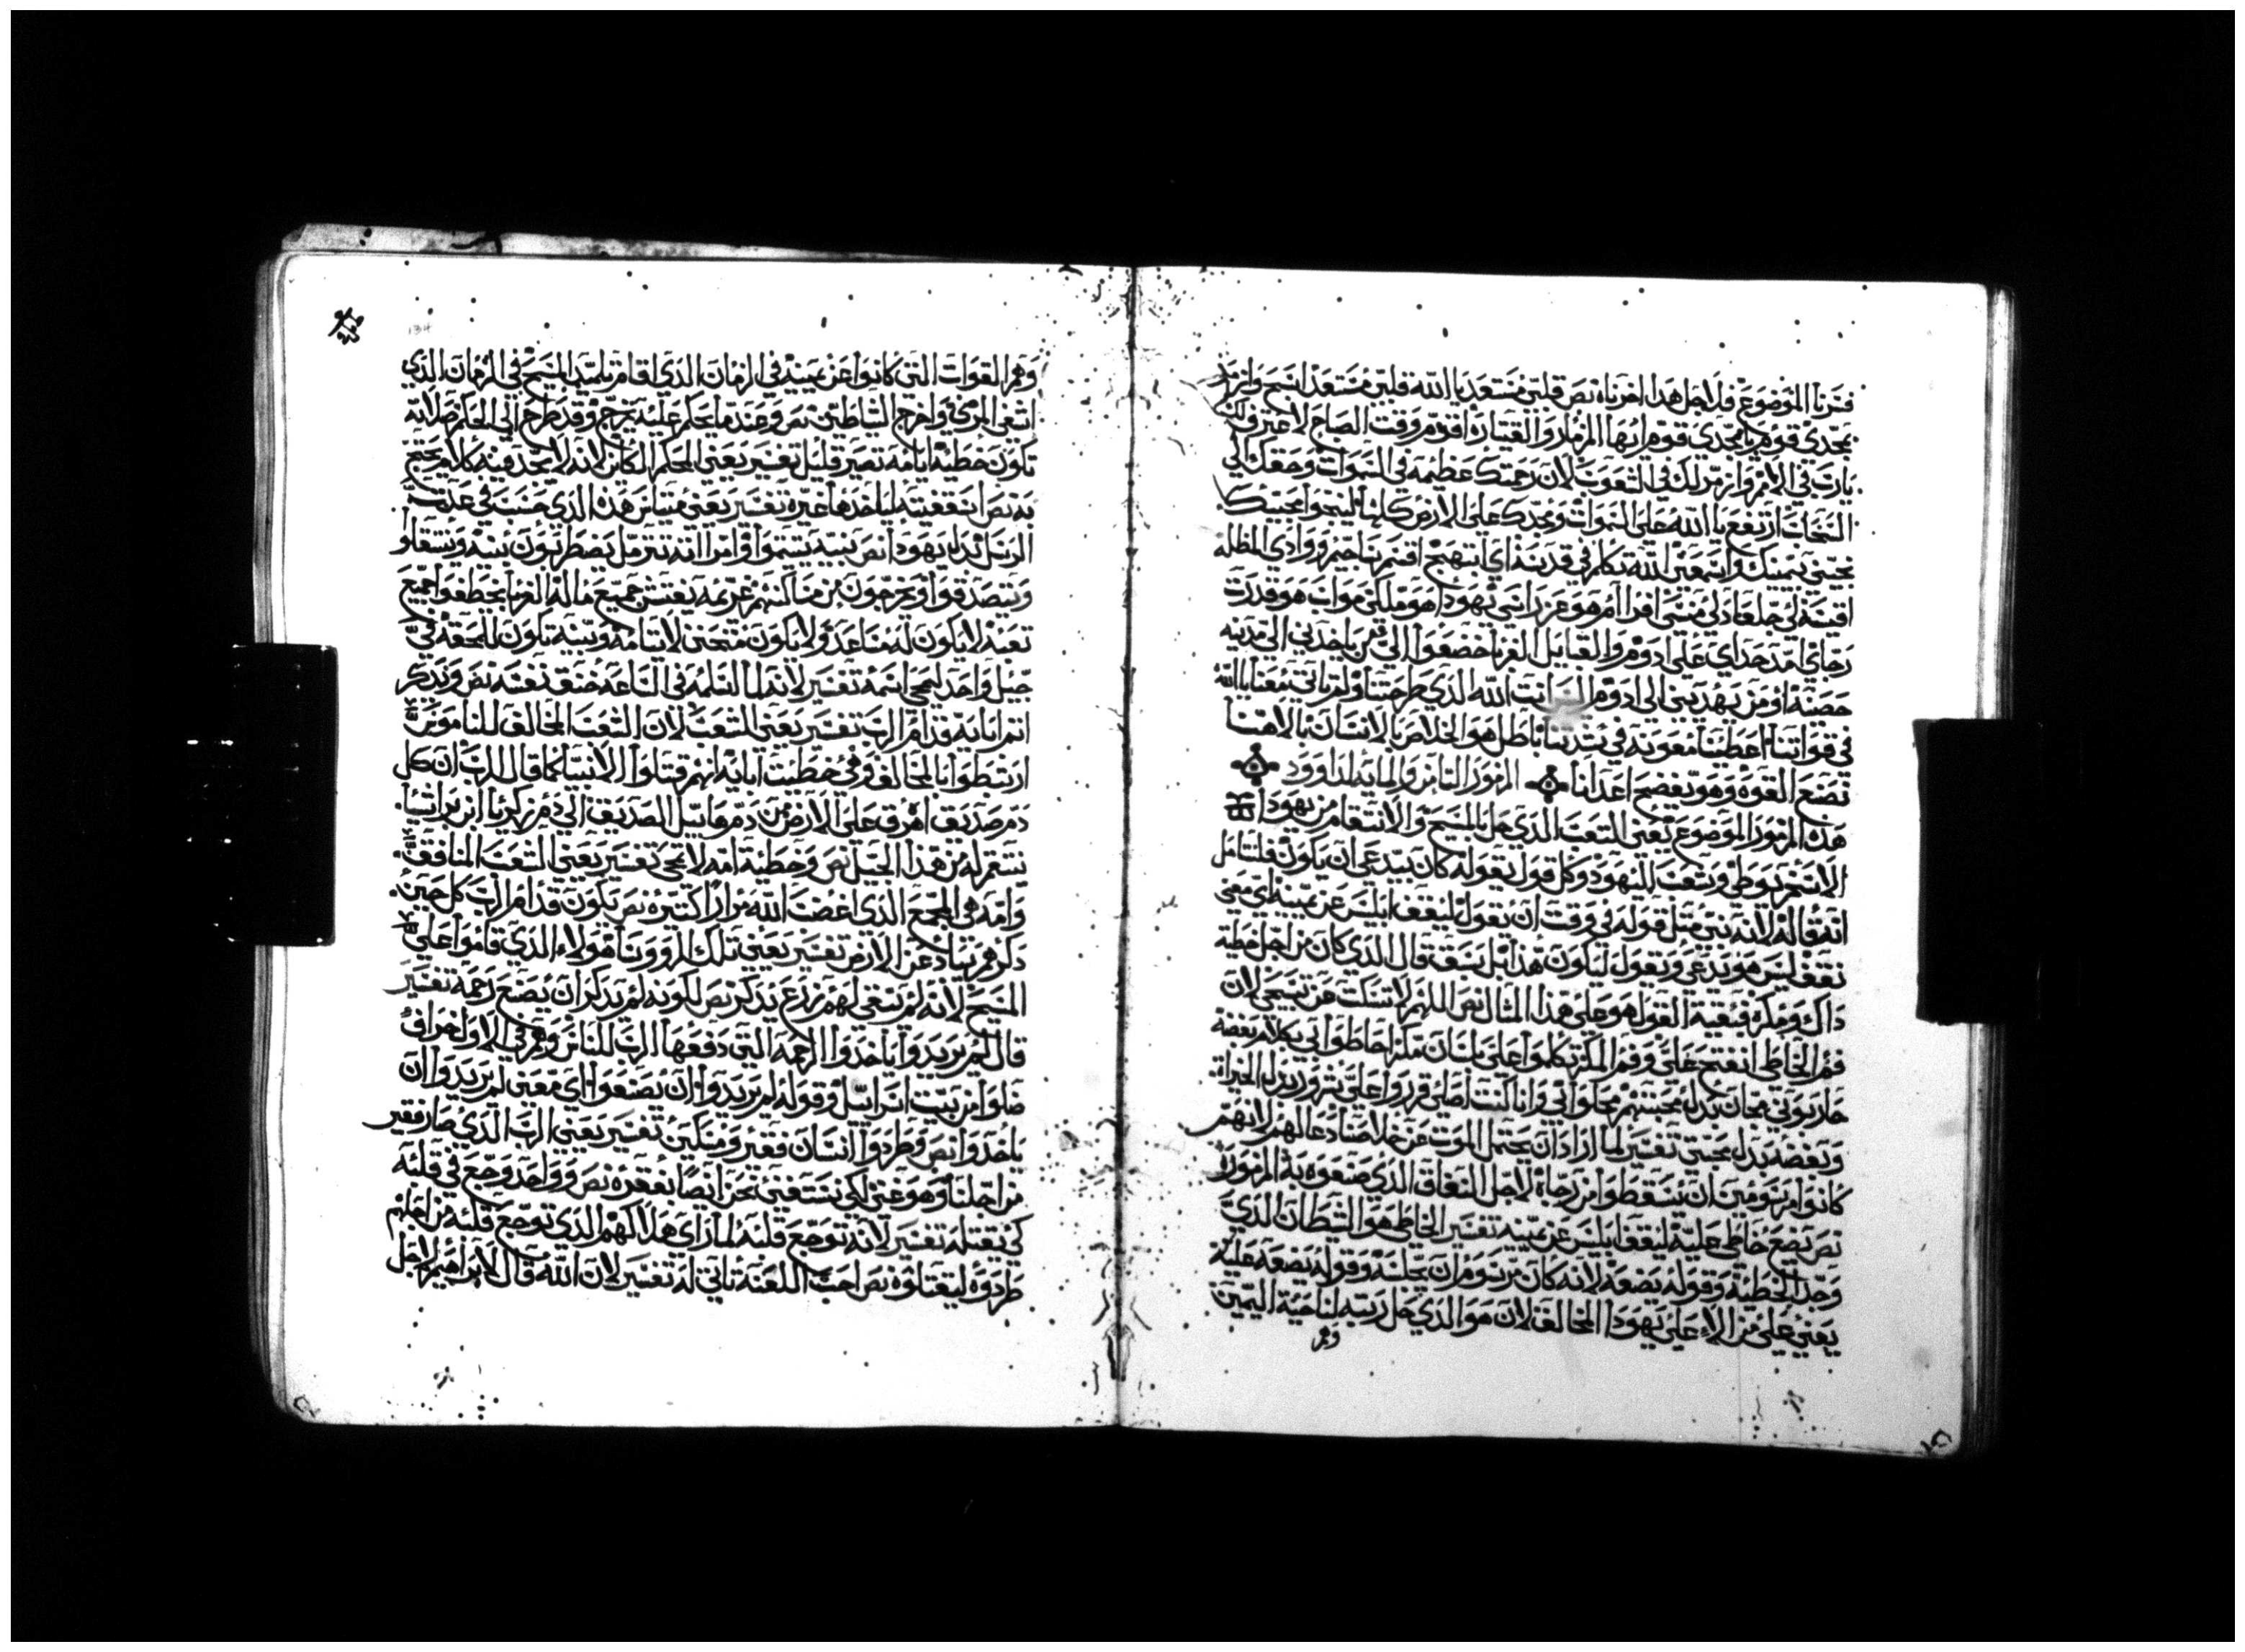 فسرنا الموضوع فلاجل هذا اخرناه نص قلبي مستعد يا الله قلبي مستعد اسبح وارتل
بمجدي قوم يا مجدي قوم ايها المزمار والقيتارة اقوم وقت الصباح لاعترف لك
يارب في الامم وارتل لك في الشعوب لان رحمتك عظيمه في السموات وحقك الي
السحاب ارتفع يا الله على السموات ومجدك على الارض كلها لينجوا محبيك
نجيني بيمينك واسمعني الله تكلم في قدسه اي ابتهج اقسم ساحيم ووادي المظله
اقيسه لي جلعاد لي منسي افرام هو عز راسي يهودا هو ملكي مواب هو قدرت
رجاي امد حداي على ادوم والقبايل الغربا خضعوا الي من ياخدني الى مدينه
حصنه او من يهديني الى ادوم انت الله الذي طرحتنا ولم تاتي معنا يا الله
في قواتنا اعطينا معونه في شدتنا باطل هو الخلاص بالانسان بالاهنا
نصنع القوه وهو يفضح اعدانا المزمور الثامن والمايه لداوود
هذه المزمور الموضوع يعني التعب الذي حل بالمسيح والانتقام من يهودا
الاسخريوطي وشعب اليهود وكل قول يقوله كان يتدعي ان يكون فلنتامل
انه قاله لانه نبي مثل قوله في وقت ان يقول ليقف ابليس عن يمينه اي معني
يقف ليس هو يدعي ويقول ليكون هذا بل سبق قال الذي كان من اجل خطية
داك ومكره فبقية القول هو على هذا المثال نص اللهم لا تسكت عن تسبحتي لان
فم الخاطي انفتح علي وفم المكر تكلموا علي بلسان مكر احاطوا بي بكلام بغضة
حاربوني مجان بدل محبتهم محلوا بي وانا كنت اصلي قرروا علي شرور بدل الخيرات
وبغضه بدل محبتي تفسير لما اراد ان يحتمل الموت عن خلاصنا دعا لهم لانهم
كانوا مزمومين ان يسقطوا من رجاه لاجل النفاق الذي صنعوه به المزمور
نص يضع خاطي عليه ليقف ابليس عن يمينه تفسير الخاطي هو الشيطان الذي
وجد الخطيه وقوله يضعه لانه كان مرسوم ان يجلسه وقوله يضعه عليه
يعني على من الا على يهودا المخالف لان هو الذي حل ربيه لناحية اليمين
وهم
وهم القوات التي كانوا عن يمينه في الزمان الذي اقام تلميذ المسيح في الزمان الذي
اشفى المرضي واخرج الشياطين نص وعندما يحكم عليه يرجم وقد طرح الى الحكم صلاته
تكون خطيه ايامه تصير قليل تفسير يعني الحكم الكاين لانه لا يجد فيه كلام يحتج
به نص اسقفيته لياخدها غيره تفسير يعني متياس هذا الذي حسب في عدت
الرسل بدل يهودا نص بنيه يتموا وامراته تترمل يضطربون بنيه ويتنقلو
ويتصدقوا ويخرجون من مساكنهم غريمه يفتش جميع ماله الغربا يخطفوا جميع
تعبه لا يكون له مساعد ولا يكون متحنن لايتامه وبنيه تكون للمحقه في
جيل واحد يمحي اسمه تفسير لانه لما اسلمه في الساعه خنق نفسه نص ويدكر
اتم ابايه قدام الرب تفسير يعني الشعب لان الشعب المخالف للناموس
ارتبطوا بالمخالف وفي خطية ابايه انهم قتلوا الانبيا كما قال الرب ان كل
دم صديق اهرق على الارض من دم هابيل الصديق الي دم زكريا ابن براشيا
ينتقم له من هذا الجيل نص وخطية امه لا تمحي تفسير يعني الشعب المنافق
وامه هي المجمع الذي اغضب الله مرارا كثيره نص يكون قدام الرب كل حين
دكرهم تباد عن الارض تفسير يعني تلك الرووسا هولاء الذي قاموا على
المسيح لانه لم يبقي لهم زرع يدكر نص لكونه لم يدكر ان يصنع رحمه تفسير
قال لم يريدوا ياخدوا الرحمه التي دفعها الرب للناس وهم في الاول خراف
ضلوا من بيت اسراييل وقوله لم يريدوا ان يصنعوا اي معني لم يريدوا ان
ياخدوا نص وطردوا انسان فقير ومسكين تفسير يعني الرب الذي صار فقير
من اجلنا وهو غني لكي نستغني نحن ايضا بفقره نص وواحد وجع في قلبه
كي يقتله تفسير لانه توجع قلبه لما راى هلاكهم الذي توجع قلبه من اجلهم
طردوه ليقتلوه نص احب اللعنه تاتي له تفسير لان الله قال لابراهيم لاجل